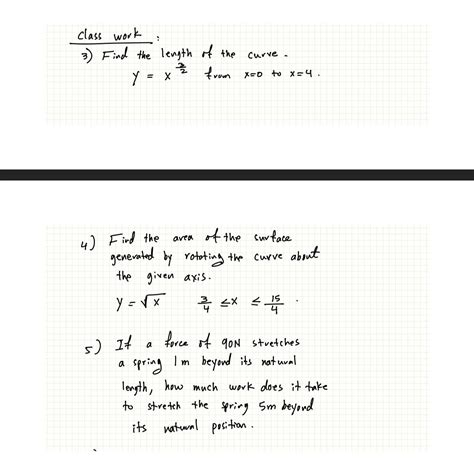 Class work :
3) Find the length of the curve.
y = x^{3/2} from x=0 to x=4.
4) Find the area of the surface
generated by rotating the curve about
the given axis.
y = √x 3/4 ≤ x ≤ 15/4
5) If a force of 90N stretches
a spring 1m beyond its natural
length, how much work does it take
to stretch the spring 5m beyond
its natural position.